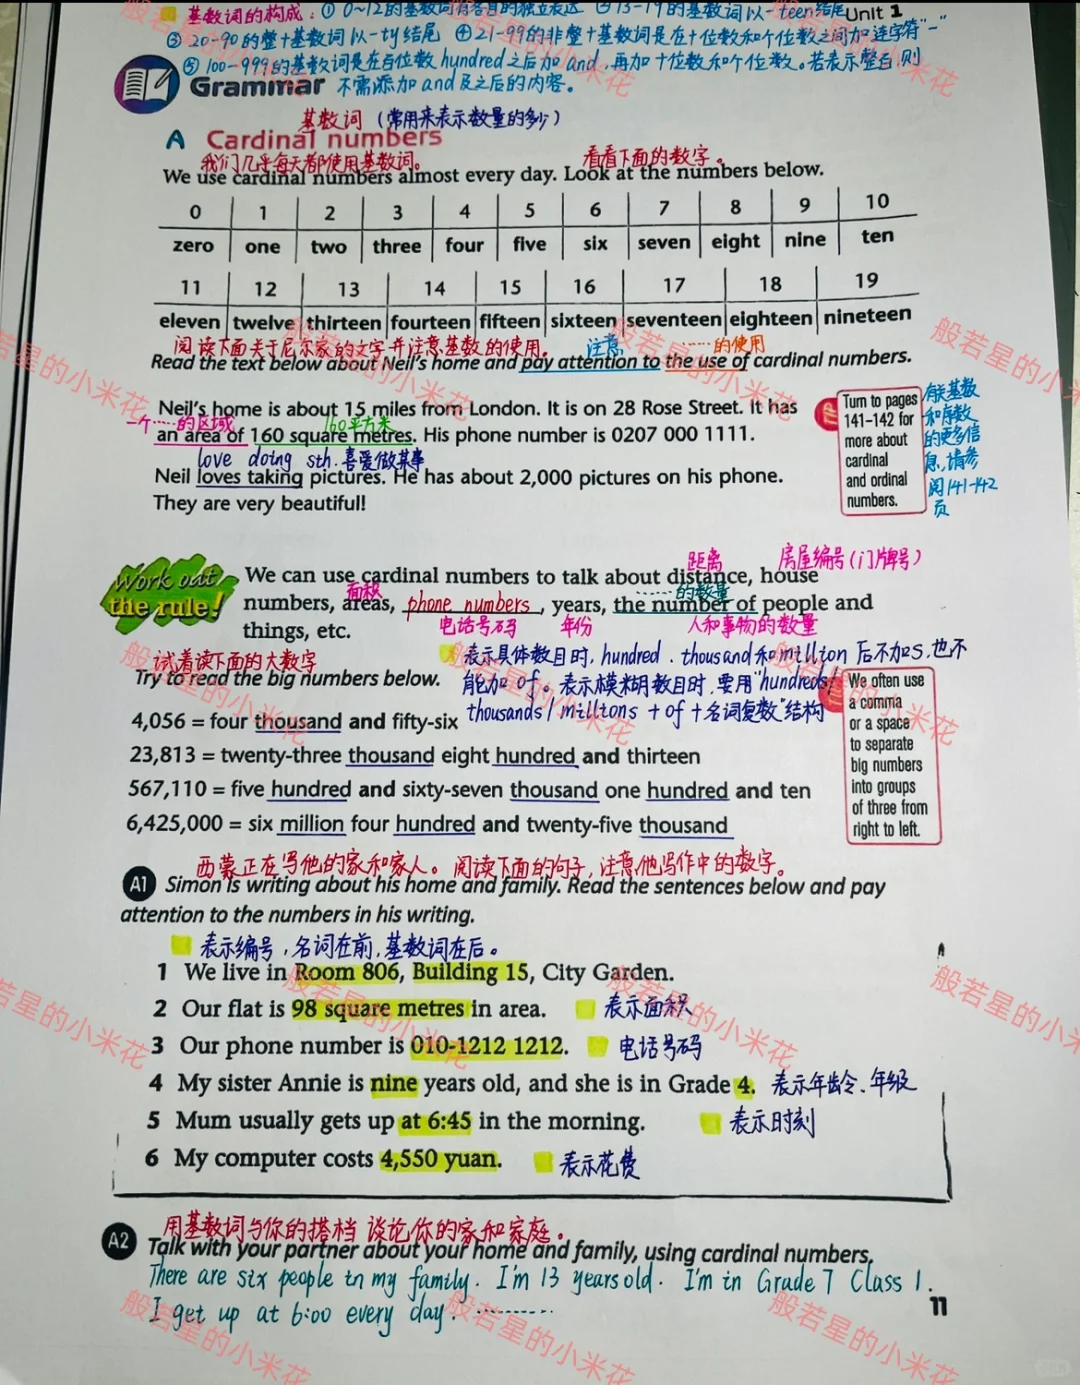 基数词的构成：① 0~12的基数词有各自的独立表达 ② 13-19的基数词以-teen结尾 Unit 1
③ 20-90的整十基数词以-ty结尾 ④ 21-99的非整十基数词是在十位数和个位数之间加连字符"-"
⑤ 100-999的基数词是在百位数hundred之后加and，再加十位数和个位数。若表示整百，则
Grammar 不需添加and及之后的内容。
基数词（常用来表示数量的多少）
A Cardinal numbers
我们几乎每天都使用基数词。 看看下面的数字。
We use cardinal numbers almost every day. Look at the numbers below.
0 1 2 3 4 5 6 7 8 9 10
zero one two three four five six seven eight nine ten
11 12 13 14 15 16 17 18 19
eleven twelve thirteen fourteen fifteen sixteen seventeen eighteen nineteen
阅读下面关于尼尔家的文字并注意基数的使用。 注意 ……的使用
Read the text below about Neil's home and pay attention to the use of cardinal numbers.
Neil's home is about 15 miles from London. It is on 28 Rose Street. It has
一个……的区域 160平方米
an area of 160 square metres. His phone number is 0207 000 1111.
love doing sth. 喜爱做某事
Neil loves taking pictures. He has about 2,000 pictures on his phone.
They are very beautiful!
TIP
Turn to pages
141–142 for
more about
cardinal
and ordinal
numbers.
有关基数
和序数
的更多信
息，请参
阅141-142
页
距离 房屋编号（门牌号）
Work out
the rule!
We can use cardinal numbers to talk about distance, house
面积 ……的数量
numbers, areas, phone numbers, years, the number of people and
电话号码 年份 人和事物的数量
things, etc.
试着读下面的大数字
Try to read the big numbers below.
表示具体数目时，hundred、thousand和million后不加s，也不
能加of。表示模糊数目时，要用"hundreds/
thousands/millions + of + 名词复数"结构
4,056 = four thousand and fifty-six
23,813 = twenty-three thousand eight hundred and thirteen
567,110 = five hundred and sixty-seven thousand one hundred and ten
6,425,000 = six million four hundred and twenty-five thousand
We often use
a comma
or a space
to separate
big numbers
into groups
of three from
right to left.
西蒙正在写他的家和家人。阅读下面的句子，注意他写作中的数字。
A1 Simon is writing about his home and family. Read the sentences below and pay
attention to the numbers in his writing.
表示编号，名词在前，基数词在后。
1 We live in Room 806, Building 15, City Garden.
2 Our flat is 98 square metres in area. 表示面积
3 Our phone number is 010-1212 1212. 电话号码
4 My sister Annie is nine years old, and she is in Grade 4. 表示年龄、年级
5 Mum usually gets up at 6:45 in the morning. 表示时刻
6 My computer costs 4,550 yuan. 表示花费
用基数词与你的搭档谈论你的家和家庭。
A2 Talk with your partner about your home and family, using cardinal numbers.
There are six people in my family. I'm 13 years old. I'm in Grade 7 Class 1.
I get up at 6:00 every day. ………
11
般若星的小米花